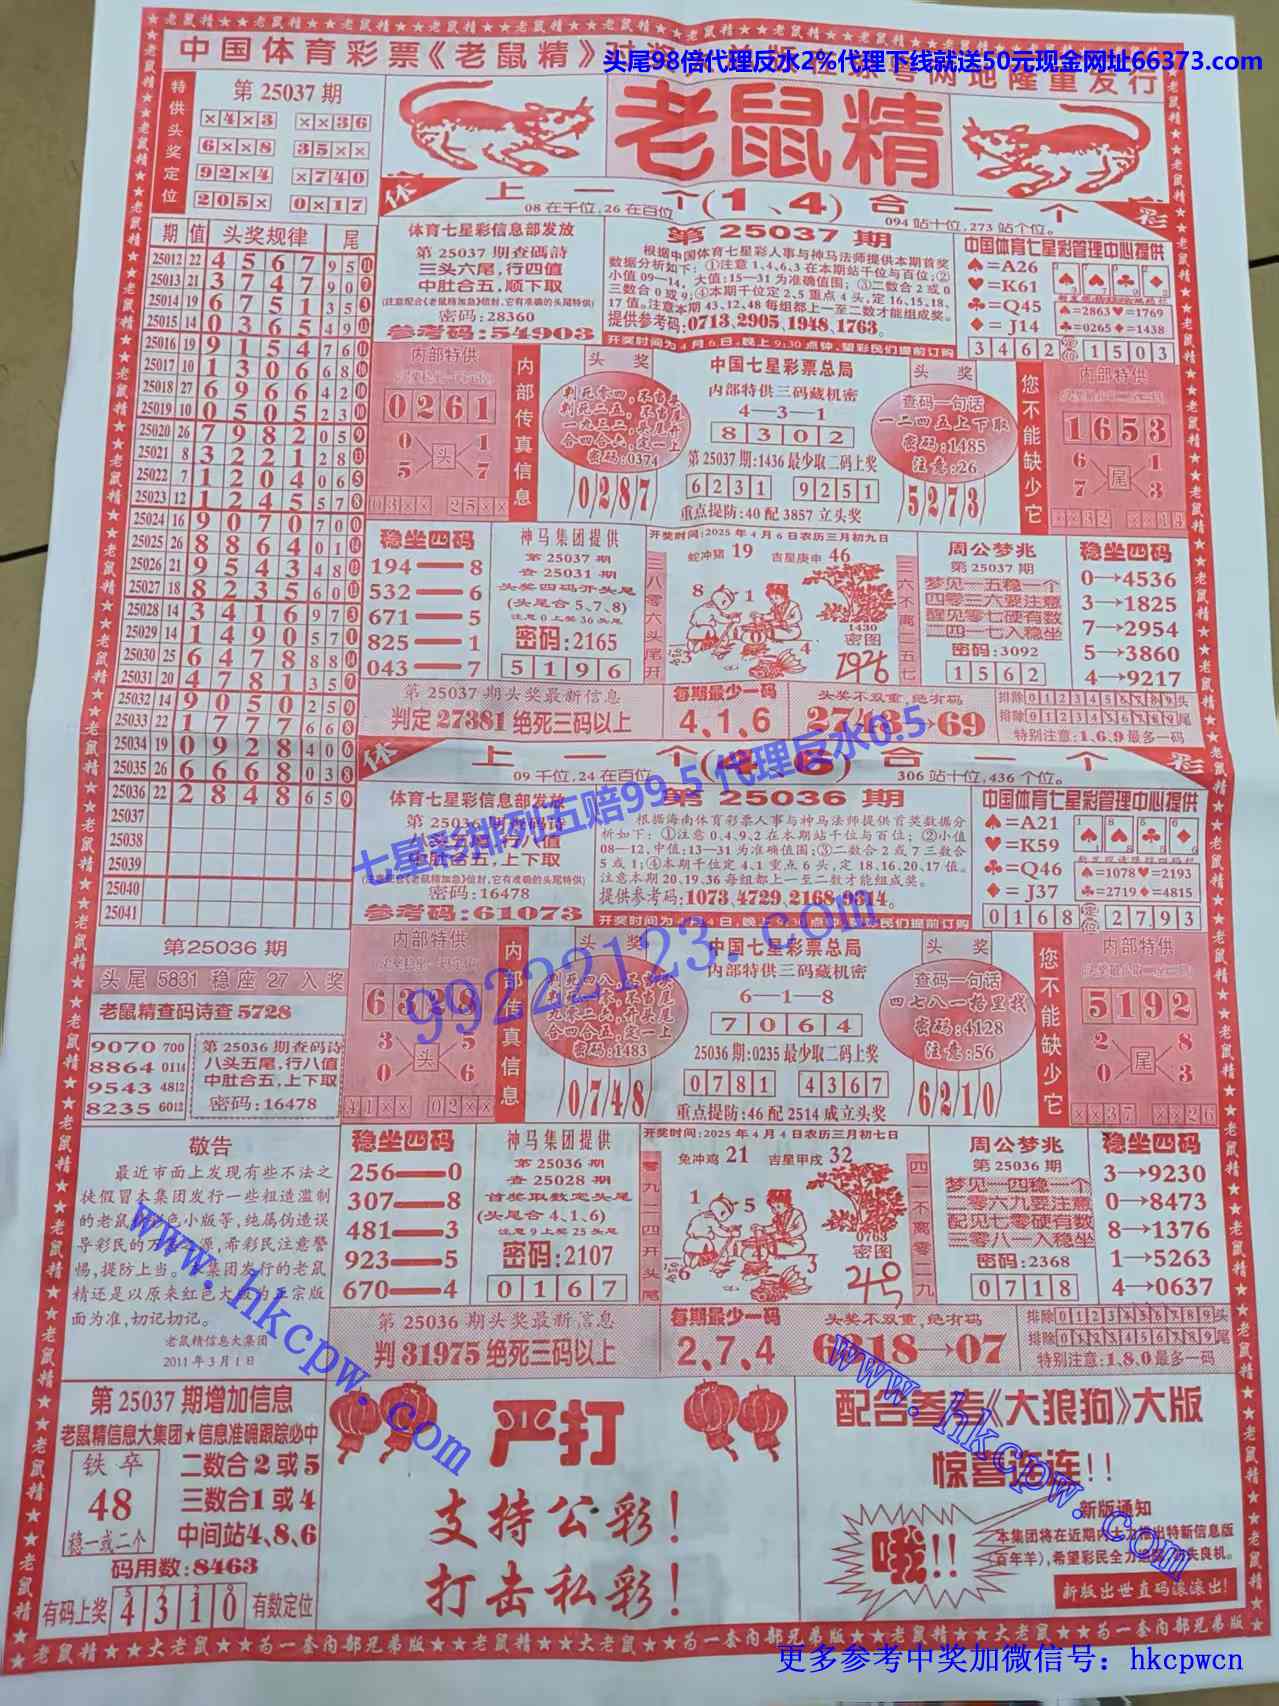 头尾98倍代理反水2%代理下线就送50元现金网址66373.com
中国体育彩票《老鼠精》
两地隆重发行
特供头奖定位
第 25037 期
×4×3 ××36
6××8 35××
92×4 ×740
205× 0×17
老鼠精
休 上一个(1、4)合一个 彩
08 在千位,26 在百位
094 站十位,273 站个位。
期 值 头奖规律 尾
25012 22 4 5 6 7 9 5
25013 21 3 7 4 7 9 0
25014 19 6 7 5 1 3 5
25015 14 0 3 6 5 4 9
25016 19 9 1 5 4 7 6
25017 10 1 3 0 6 6 8
25018 27 6 9 6 6 4 2
25019 10 0 5 0 5 2 3
25020 26 7 9 8 2 0 5
25021 8 3 2 2 1 2 8
25022 7 1 2 0 4 0 6
25023 12 1 2 4 5 5 7
25024 16 9 0 7 0 7 0
25025 26 8 8 6 4 0 1
25026 21 9 5 4 3 4 8
25027 18 8 2 3 5 6 0
25028 14 3 4 1 6 9 7
25029 14 1 4 9 0 5 7
25030 25 6 4 7 8 8 8
25031 20 4 7 8 1 3 5
25032 14 9 0 5 0 2 5
25033 22 1 7 7 7 6 6
25034 19 0 9 2 8 4 0
25035 26 6 6 6 8 0 3
25036 22 2 8 4 8 6 5
25037
25038
25039
25040
25041
体育七星彩信息部发放
第 25037 期查碼詩
三头六尾,行四值
中肚合五,顺下取
密码:28360
参考码:54903
第 25037 期
根据中国体育七星彩人事与神马法师提供本期首奖
数据分析如下: ①注意 1、4、6、3 在本期站千位与百位;②
小值 09—14, 大值:15—31 为准确值围; ③二数合 2 或 0
三数合 0 或 9;④本期千位定 2、5 重点 4 头, 定 16、15、18、
17 值。注意本期 43、12、48 每组都上一至二数才能组成奖。
提供参考码:0713、2905、1948、1763。
开奖时间为4月6日,晚上9:30点钟,望彩民们提前订购
中国体育七星彩管理中心提供
♠=A26
♥=K61
♣=Q45
♦=J14
♠=2863 ♥=1769
♣=0265 ♦=1438
3462 定位 1503
内部特供
0261
0 1
头
5 7
03×× 25××
内部传真信息
头奖
密码:0374
0287
中国七星彩票总局
内部特供三码藏机密
4—3—1
8302
第 25037 期:1436 最少取二码上奖
6231 9251
重点提防:40 配 3857 立头奖
头奖
查码一句话
一二四五上下取
密码:1485
注意:26
5273
您不能缺少它
内部特供
1653
6 1
尾
7 3
××32
稳坐四码
194——8
532——6
671——5
825——1
043——7
神马集团提供
第 25037 期
查 25031 期
头奖四码开头尾
(头尾合 5、7、8)
注意 0 上奖 36 头尾
密码:2165
5196
开奖时间:2025 年 4 月 6 日农历三月初九日
蛇冲猪 19 吉星庚申 46
三八零六头尾开
8 1
0
3 4
1430
密图
三六不离一五七
周公梦兆
第 25037 期
梦见一五稳一个
四零三六要注意
醒见零七硬有数
二四一七入稳坐
密码:3092
1562
稳坐四码
0→4536
3→1825
7→2954
5→3860
4→9217
第 25037 期头奖最新信息
判定 27381 绝死三码以上
每期最少一码
4、1、6
头奖不双重,绝有码
2743→69
排除 0 1 2 3 4 5 6 7 8 9 头
排除 0 1 2 3 4 5 6 7 8 9 尾
特别注意:1、6、9 最多一码
七星彩排列五赔99.5 代理反水0.5
休 上一个(4、6)合一个 彩
09 千位,24 在百位
306 站十位,436 个位。
体育七星彩信息部发放
第 25036 期查碼詩
中肚合五,上下取
密码:16478
参考码:61073
第 25036 期
根据海南体育彩票人事与神马法师提供首奖数据分
析如下: ①注意 0、4、9、2 在本期站千位与百位; ②小值
08—12, 中值:13—31 为准确值围;③二数合 2 或 7 三数合
5 或 1;④本期千位定 4、1 重点 6 头, 定 18、16、20、17 值。
注意本期 20、19、36 每组都上一至二数才能组成奖。
提供参考码:1073、4729、2168、9314。
中国体育七星彩管理中心提供
♠=A21
♥=K59
♣=Q46
♦=J37
♠=1078 ♥=2193
♣=2719 ♦=4815
0168 定位 2793
99222123.com
第25036 期
头尾 5831 稳座 27 入奖
老鼠精查码诗查 5728
9070 700
8864 0114
9543 4812
8235 6012
第 25036 期查码诗
八头五尾,行八值
中肚合五,上下取
密码:16478
内部特供
6328
3 5
头
0 6
41×× 02××
内部传真信息
头奖
密码:1483
0748
中国七星彩票总局
内部特供三码藏机密
6—1—8
7064
25036 期:0235 最少取二码上奖
0781 4367
重点提防:46 配 2514 成立头奖
头奖
查码一句话
四七八一格里找
密码:4128
注意:56
6210
您不能缺少它
内部特供
5192
2 8
尾
0 3
××37 ××26
敬告
最近市面上发现有些不法之
徒假冒本集团发行一些粗造滥制
的老鼠精色小版等,纯属伪造误
导彩民的万源,希彩民注意警
惕,提防上当。本集团发行的老鼠
精还是以原来红色大版为正宗版
面为准,切记切记。
老鼠精信息大集团
2011 年 3 月 1 日
稳坐四码
256——0
307——8
481——3
923——5
670——4
神马集团提供
第 25036 期
查 25028 期
首奖取数定头尾
(头尾合 4、1、6)
注意 9 上奖 25 头尾
密码:2107
0167
开奖时间:2025 年 4 月 4 日农历三月初七日
兔冲鸡 21 吉星甲戌 32
零九二四开头尾
1 5
6 3
0763
密图
四一不离零二九
周公梦兆
第 25036 期
梦见一四稳一个
零六九要注意
配见七零硬有数
三零八一入稳坐
密码:2368
0718
稳坐四码
3→9230
0→8473
8→1376
1→5263
4→0637
第 25036 期头奖最新信息
判 31975 绝死三码以上
每期最少一码
2、7、4
头奖不双重,绝有码
6318→07
排除 0 1 2 3 4 5 6 7 8 9 头
排除 0 1 2 3 4 5 6 7 8 9 尾
特别注意:1、8、0 最多一码
www.hkcpw.com
www.hkcpw.com
第 25037 期增加信息
老鼠精信息大集团★信息准确跟踪必中
铁卒
48
稳一或二个
二数合 2 或 5
三数合 1 或 4
中间站4、8、6
码用数:8463
有码上奖 4310 有数定位
严打
支持公彩!
打击私彩!
配合参考《大狼狗》大版
惊喜连连!!
哦!!
新版通知
本集团将在近期内大力推出特新信息版
(百年羊),希望彩民全力追踪,勿失良机。
新版出世直码滚滚出!
★老鼠精★★大老鼠★★为一套内部兄弟版★★老鼠精★★大老鼠★★为一套内部兄弟版★
更多参考中奖加微信号: hkcpwcn